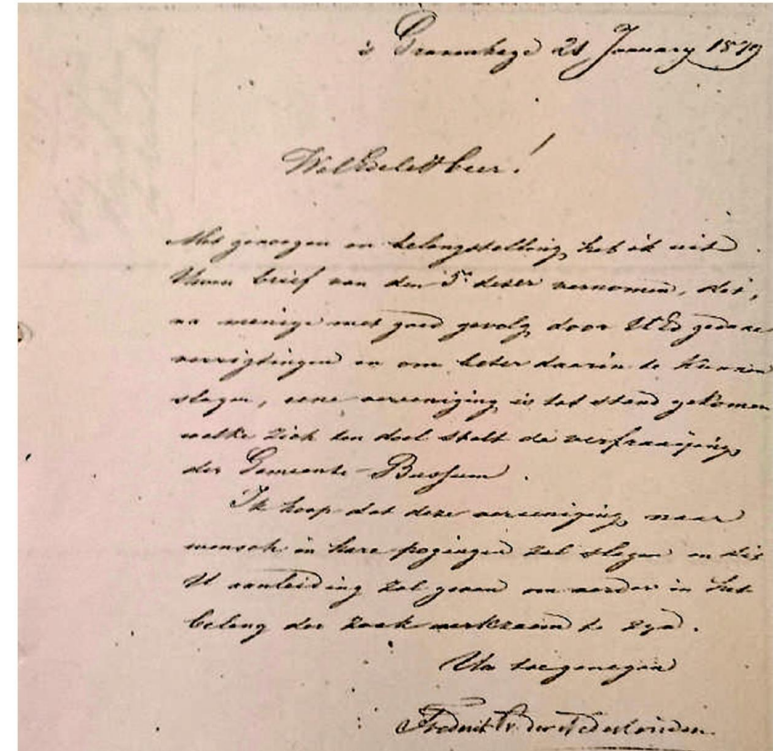 's Gravenhage 21 January 1879
WelEdele Heer!
Met genoegen en belangstelling heb ik uit
Uwen brief van den 5n dezer vernomen, dat,
na menige met goed gevolg door UEd gedane
verrigtingen en om beter daarin te kunnen
slagen, eene vereeniging is tot stand gekomen
welke zich ten doel stelt de verfraaijing
der Gemeente-Bussum.
Ik hoop dat deze vereeniging naar
wensch in hare pogingen zal slagen en dit
U aanleiding zal geven om verder in het
belang der zaak werkzaam te zyn.
Uw toegenegen
Frederik Pr. der Nederlanden.